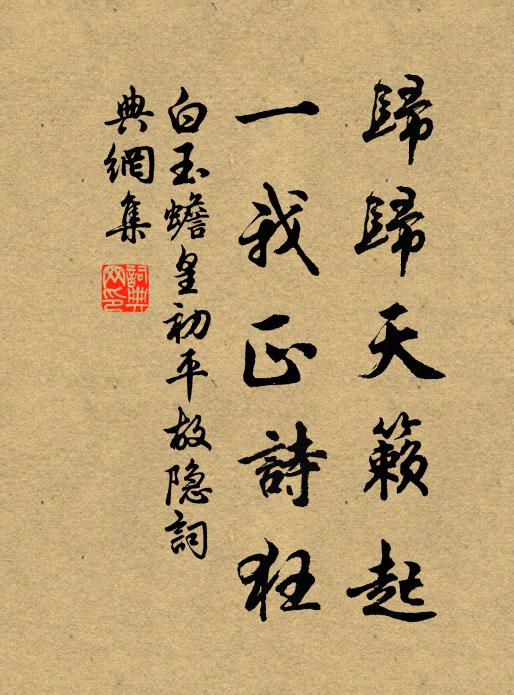 歸歸天籟起
一我正詩狂
白玉蟾皇初平故隐詞
典網集
詞典
网印